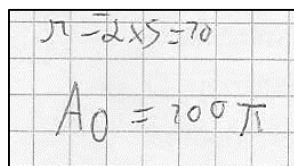 r = 2x5 = 10
A₀ = 100 π